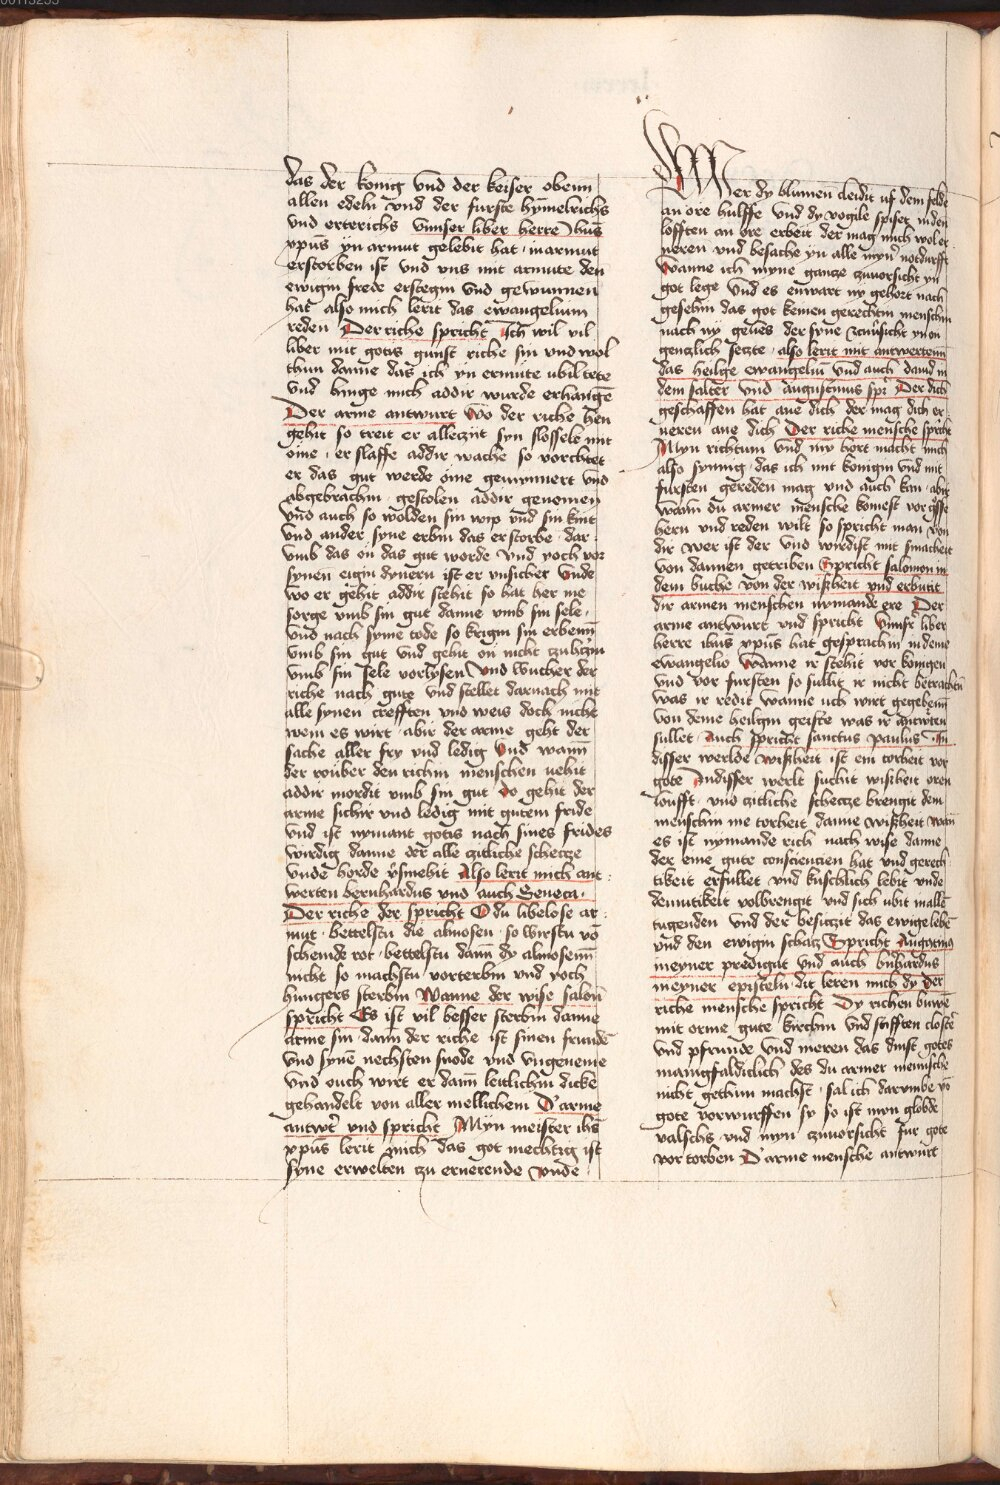 das der konig vnd der keiser obenn
allen edeln vnd der furste hymelrichs
vnd ertrerichs vnnser liber herre ihus
xpus yn armut gelebit hat · in armut
erstorben ist vnd vns mit armute den
ewigin frede erstegin vnd gewunnen
hat also mich lerit das ewangelium
reden Der riche spricht Ich wil vil
liber mit gotis gunst riche sin vnd wol
thun danne das ich yn ermute vbil tete
vnd hinge mich addir wurde erhangē
Der arme antwurt Wo der riche hen
gehit so treit er alleczijt syn slossele mit
oine · er slaffe addir wache so vorchtet
er das gut werde oine gemynnert vnd
abgebrachin · gestolen addir genomen
vnd auch so wolden sin wip vnd sin kint
vnd ander syne erbin das er storbe · dar
vmb das ön das gut worde vnd noch vor
synen eigin dynern ist er vnsicher Vnde
wo er gehit addir stehit so hat her me
sorge vmb sin gut danne vmb sin sele ·
vnd nach syme tode so krigin sin erbenn
vmb sin gut vnd gehit ön nicht zcuhczin
vmb sin sele vorlysen vnd wucher der
riche nach gute vnd stellet darnach mit
alle synen crefften vnd weis doch niche
wem es wirt · abir der arme geht der
sache aller fry vnd ledig Vnd wann
der roüber den richin menschen vehit
addir mordit vmb sin gut Do gehit der
arme sichir vnd ledig mit gutem fride
vnd ist nymant gotis nach sines frides
wirdig danne der alle czitliche schecze
vnde horde v̄smehit Also lerit mich ant
werten bernhardus vnd auch Seneca ·
Der riche der spricht O du libelose ar
mut · bettelstu die almosen · so wirstu vō
schemde rot · bettelstu dann dy almosenn
nicht so machstu vorterbin vnd noch
hungers sterbin Wanne der wise salon
spricht Es ist vil besser sterbin danne
arme sin · dann der riche ist sinen frundē
vnd synē nechsten snode vnd vngeneme
vnd ouch wirt er dann leitlichin dicke
gehandelt von aller mellichem D' arme
antwt' vnd spricht Myn meister ihs
xpus lerit mich das got mechtig ist
syne erwelten zcu ernerende vnde
Wer dy blumen cleidit uf dem felde
an ore hulffe vnd dy vogile spiset in den
lofften an ore erbeit der mag mich wol er
neren vnd besache yn alle myn' notdurfft
Wanne ich myne ganze zcuvorsicht yn
got lege vnd es enwart ny gehort nach
gesehin das got keinen gerechtin menschin
nach ny genes der syne zcuüsicht yn on
genczlich setzte · also lerit mit antwertenn
das heilge ewangeliū vnd auch dauid in
dem salter vnd augustinus spr' Der dich
geschaffen hat ane dich der mag dich er
neren ane dich Der riche mensche spricht
Myn richtum vnd my hort macht mich
also synnig · das ich mit konigin vnd mit
fursten gereden mag vnd auch kan · abir
wann du armer mensche komest vor grosse
hern vnd reden wilt so spricht man von
dir wer ist der vnd wirdist mit smacheit
von dannen getriben Spricht salomon in
dem buche von der wißheit vnd erbutit
dir armen menschen nymande ere Der
arme antwurt vnd spricht vnnsr' liber
herre ihus xpus hat gesprachin in deme
ewangelio Wanne ir stehit vor konigen
vnd vor fursten so sullit ir nicht betrachtin
was ir redit wanne uch wirt gegebenn
von deme heilgin geiste was ir antwrten
sullet · Auch spricht sanctus paulus · In
disser werlde wißheit ist ein torheit vor
gote In disser werlt suchit wißheit oren
loufft · vnd czitliche schecze brengit dem
menschin me torheit danne wißheit wan
es ist nymande rich nach wise danne
der eine gute consciencien hat vnd gerech
tikeit erfullet vnd kuschlich lebit vnde
demutikeit volbrengit vnd sich ubit in allē
tugenden vnd der besiczit das ewige lebē
vnd den ewigin schacz Spricht Augustinus
meyner predigat vnd auch bnhardus
meyner episteln · dit leren mich dy Der
riche mensche spricht Dy richen buwē
mit orme gute kirchin vnd stifften closter
vnd pfrunde vnd meren das dinst gotes
mannigfaldiclich des du armer mennsche
nicht gethun machst · sal ich darumbe vō
gote vorwurffen sy so ist myn globde
valschs · vnd myn zcuvorsicht fur gote
vortorben D' arme mensche antwurt